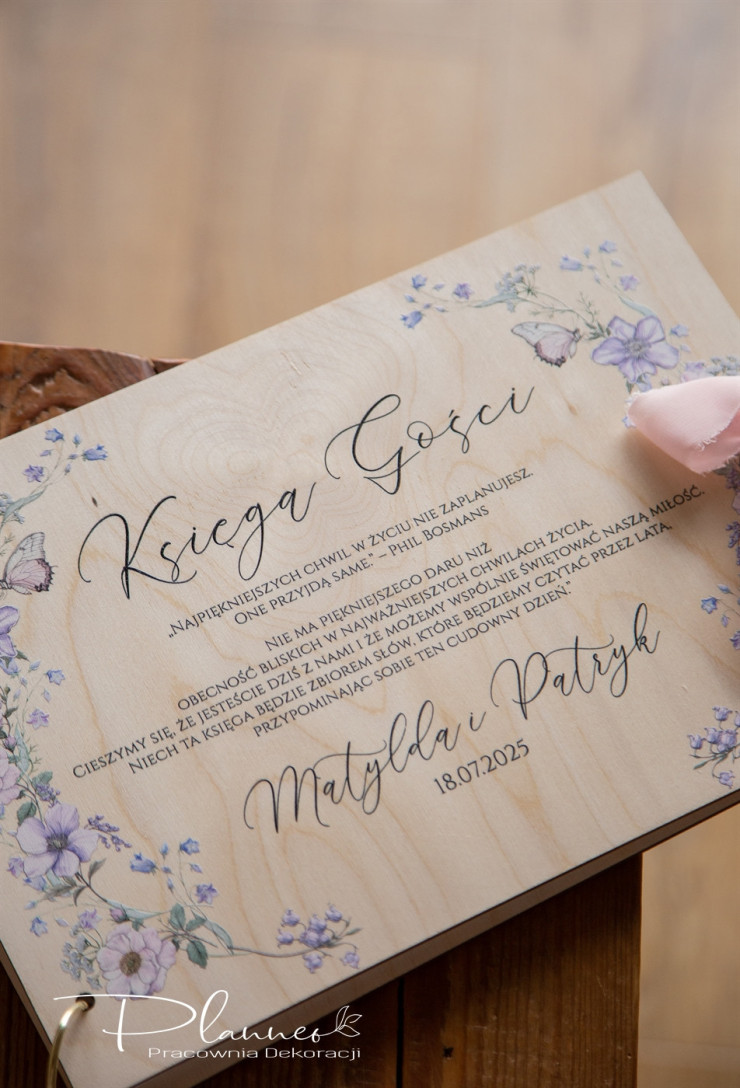 Księga Gości
„Najpiękniejszych chwil w życiu nie zaplanujesz.
One przyjdą same.” – Phil Bosmans
Nie ma piękniejszego daru niż
obecność bliskich w najważniejszych chwilach życia.
Cieszymy się, że jesteście dziś z nami i że możemy wspólnie świętować naszą miłość.
Niech ta księga będzie zbiorem słów, które będziemy czytać przez lata,
przypominając sobie ten cudowny dzień.”
Matylda i Patryk
18.07.2025
Planneo
Pracownia Dekoracji